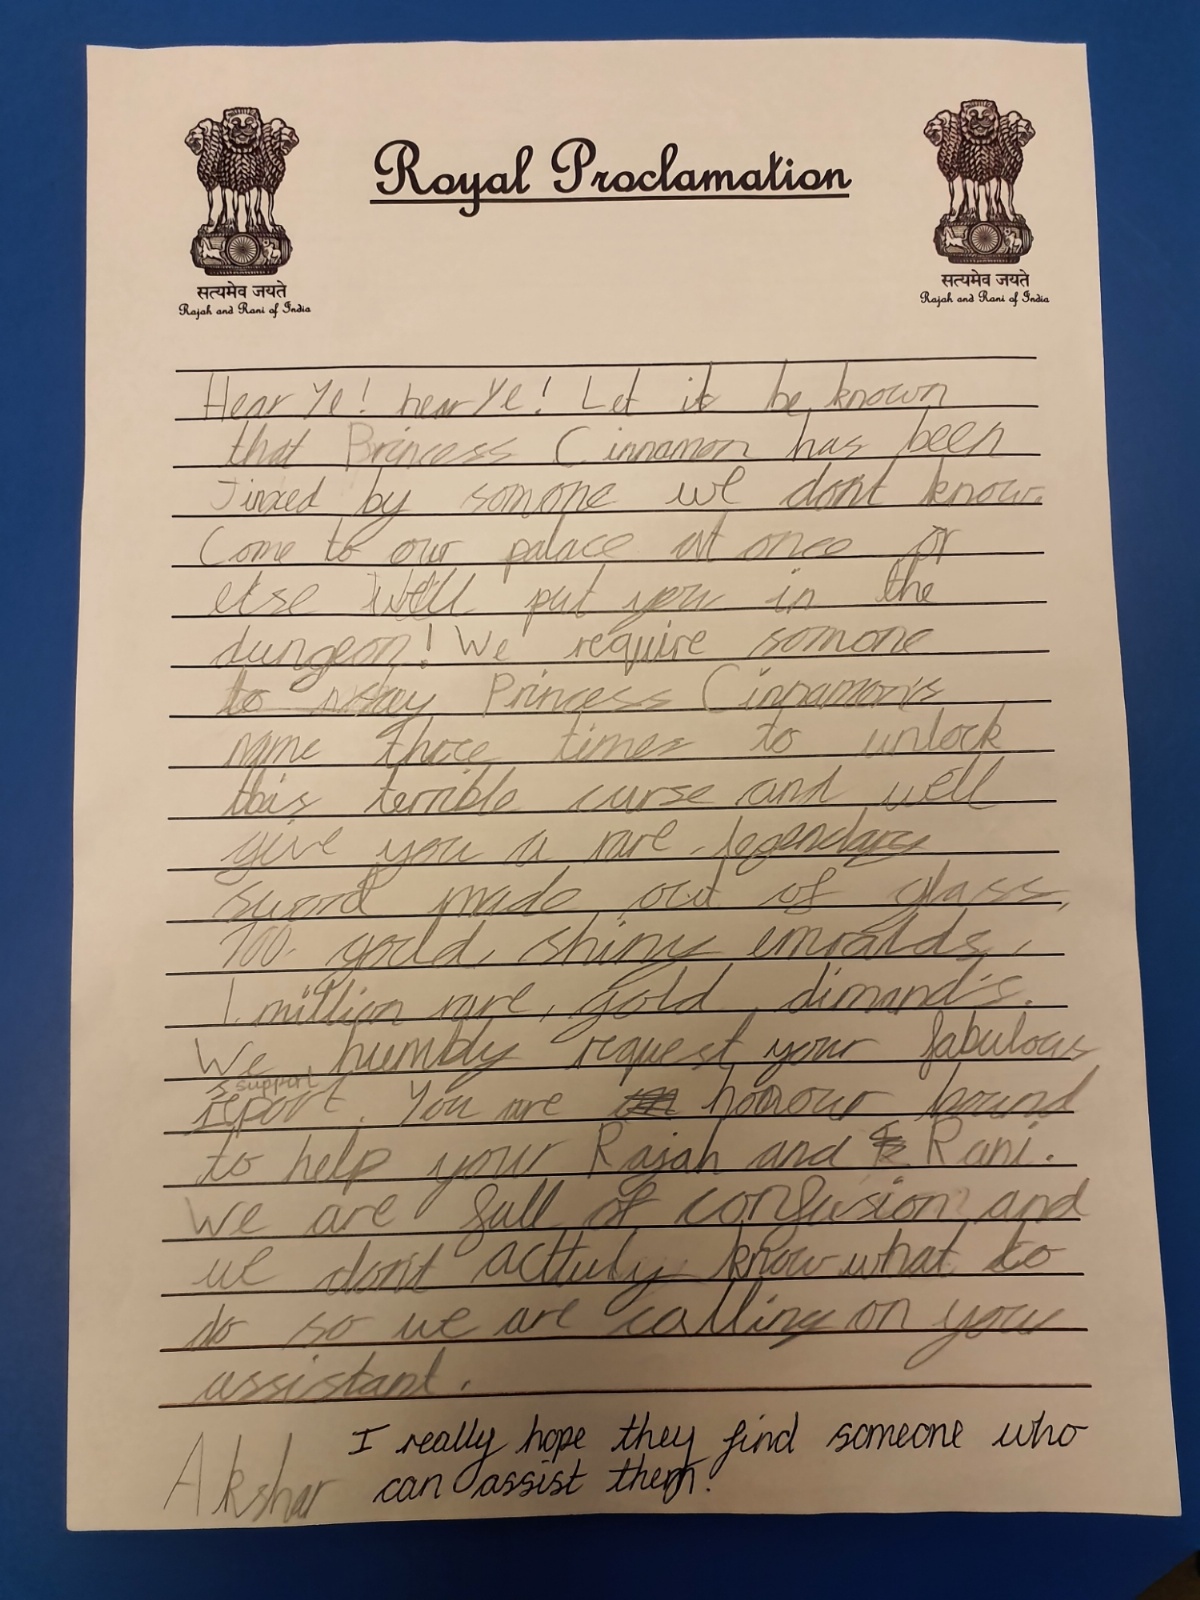 Royal Proclamation
सत्यमेव जयते
Rajah and Rani of India
सत्यमेव जयते
Rajah and Rani of India
Hear Ye! hear Ye! Let it be known
that Princess Cinnamon has been
Jinxed by somone we dont know.
Come to our palace at once or
else we'll put you in the
dungeon! We require somone
to say Princess Cinnamon's
name three times to unlock
this terrible curse and we'll
give you a rare, legendary
sword made out of glass,
700 gold, shiny emralds,
1 million rare, gold dimand's.
We humbly request your fabulous
support
report. You are honour bound
to help your Rajah and Rani.
We are full of confusion and
we don't acttuly know what to
do so we are calling on your
assistant.
Akshar
I really hope they find someone who
can assist them.